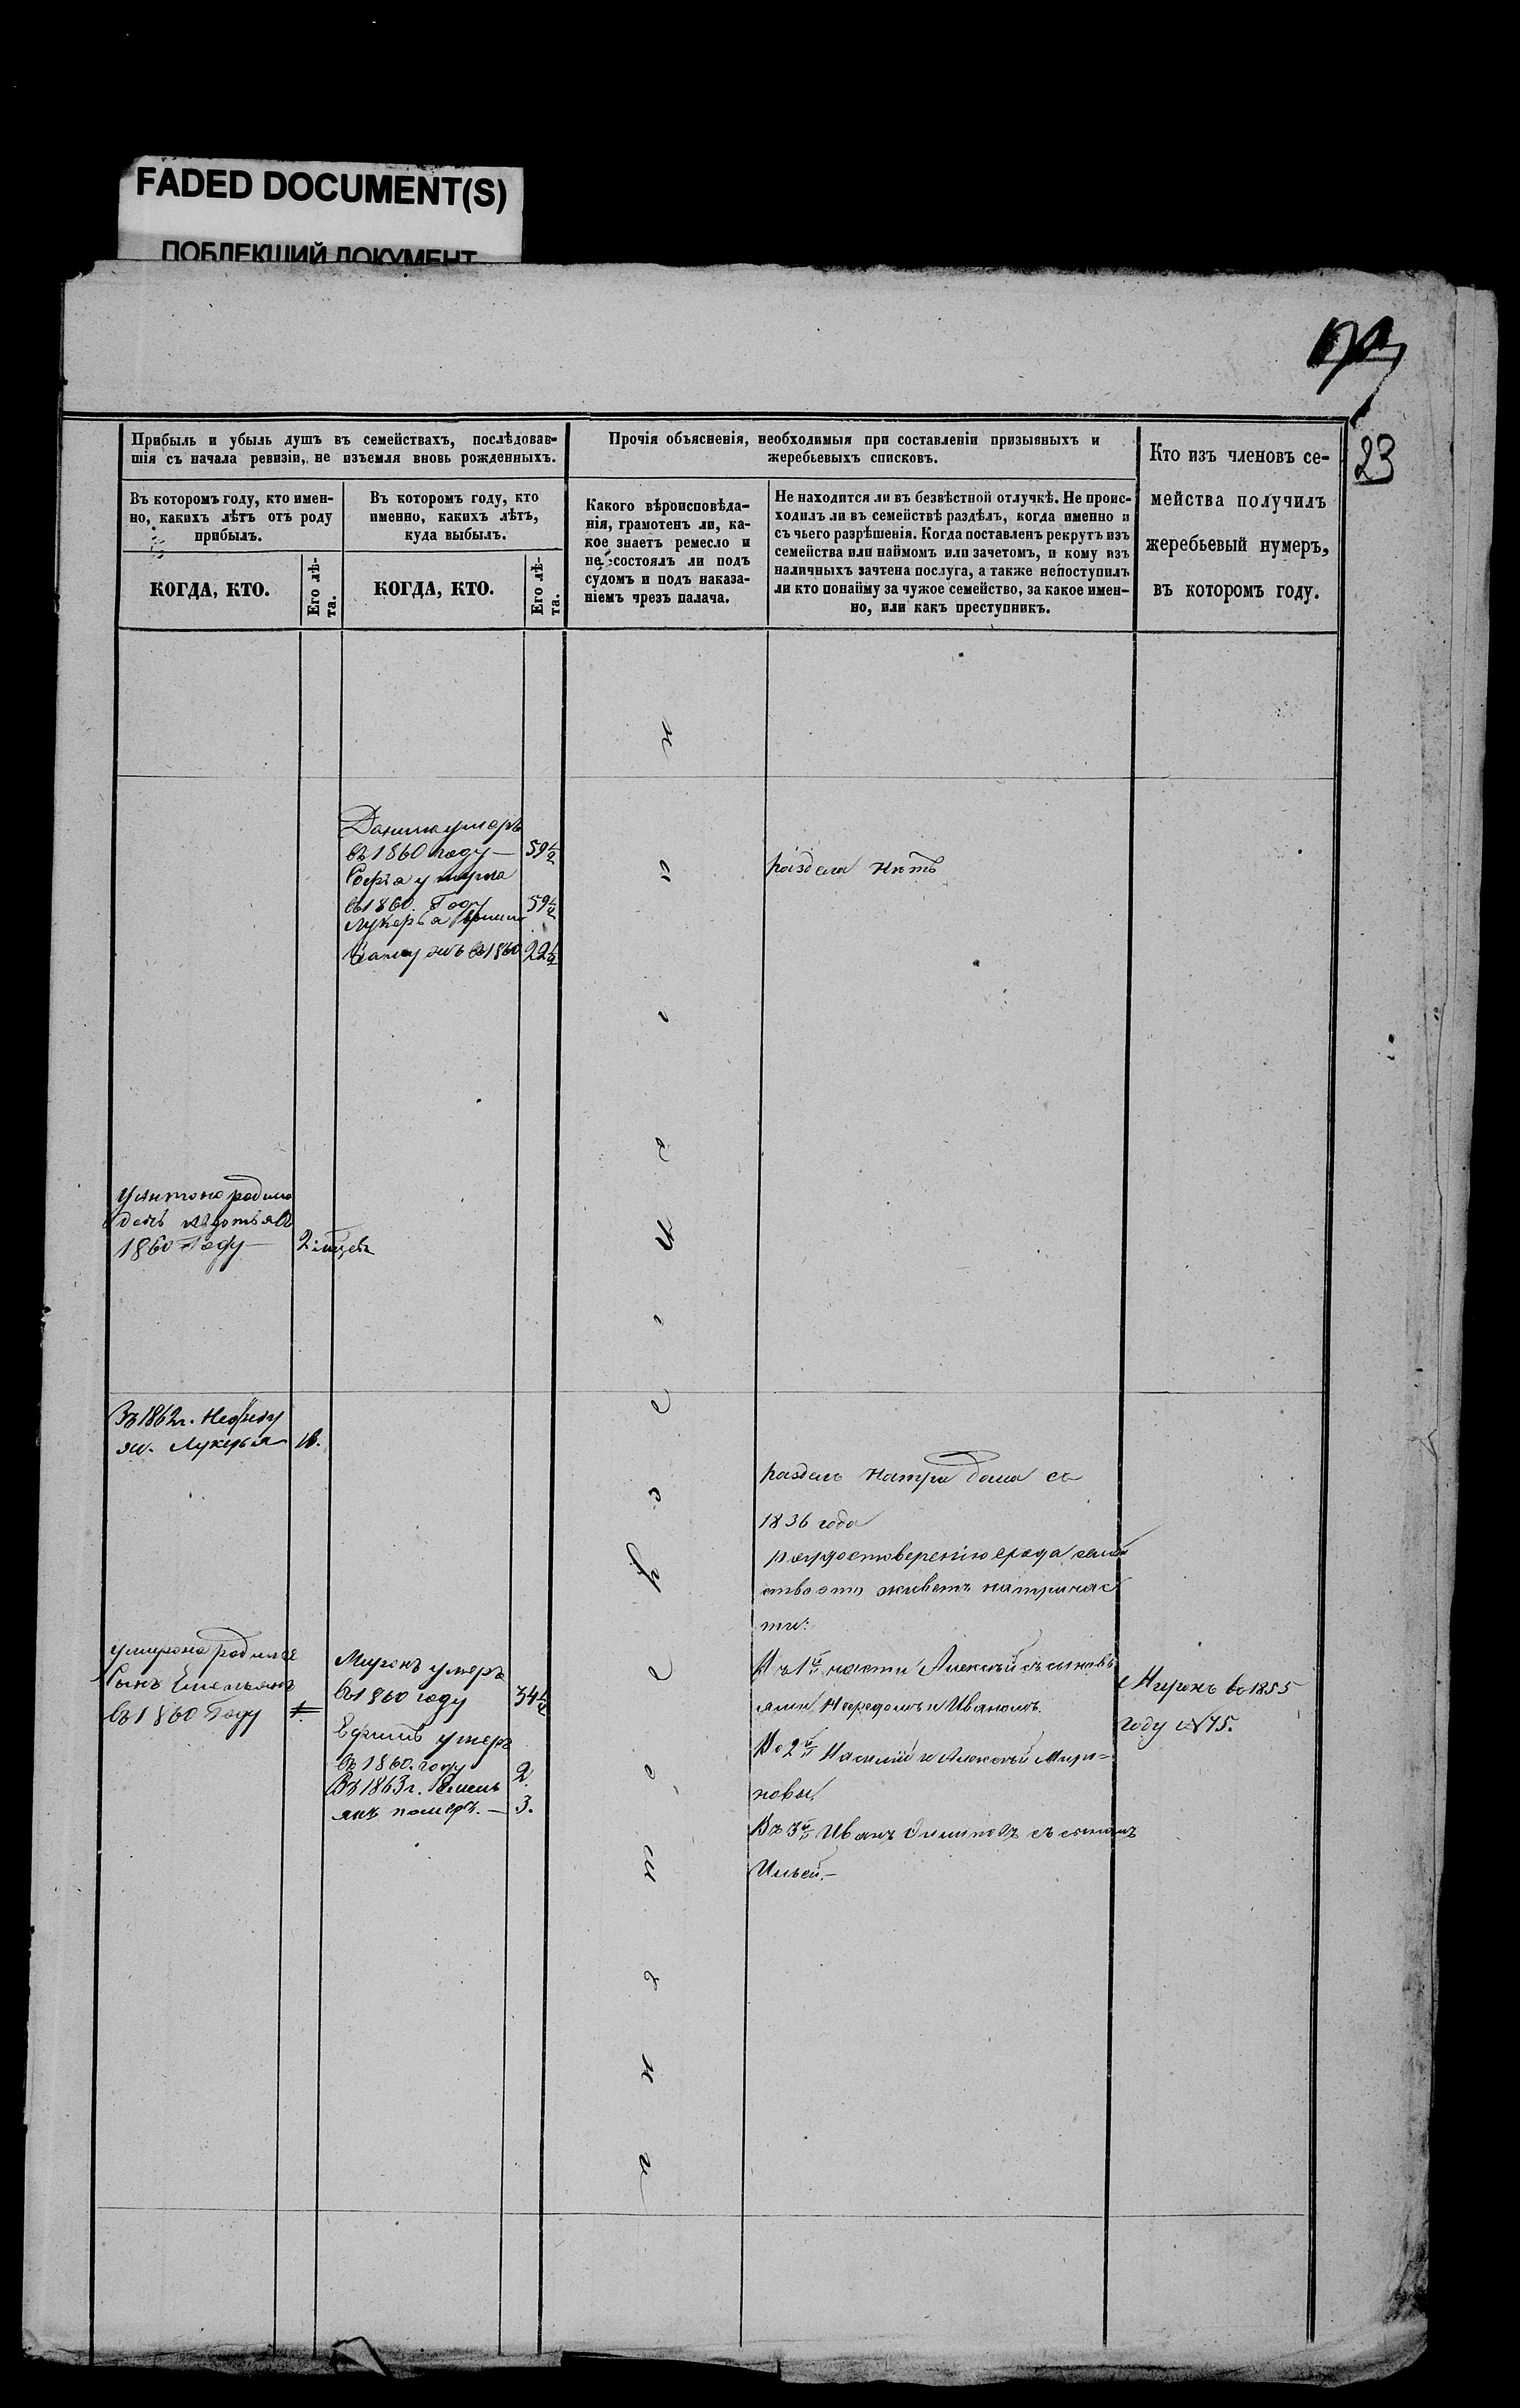 FADED DOCUMENT(S)
ПОБЛЕКШИЙ ДОКУМЕНТ
23
Прибыль и убыль душъ въ семействахъ, послѣдовав-
шія съ начала ревизіи, не изъемля вновь рожденныхъ.
Въ которомъ году, кто имен-
но, какихъ лѣтъ отъ роду
прибылъ.
КОГДА, КТО.
Его лѣ-
та.
Въ которомъ году, кто
именно, какихъ лѣтъ,
куда выбылъ.
КОГДА, КТО.
Его лѣ-
та.
Прочія объясненія, необходимыя при составленіи призывныхъ и
жеребьевыхъ списковъ.
Какого вѣроисповѣда-
нія, грамотенъ ли, ка-
кое знаетъ ремесло и
не состоялъ ли подъ
судомъ и подъ наказа-
ніемъ чрезъ палача.
Не находится ли въ безвѣстной отлучкѣ. Не проис-
ходилъ ли въ семействѣ раздѣлъ, когда именно и
съ чьего разрѣшенія. Когда поставленъ рекрутъ изъ
семейства или наймомъ или зачетомъ, и кому изъ
наличныхъ зачтена послуга, а также непоступилъ
ли кто понайму за чужое семейство, за какое имен-
но, или какъ преступникъ.
Кто изъ членовъ се-
мейства получилъ
жеребьевый нумеръ,
въ которомъ году.
Данила умеръ
въ 1860 году — 59½
умерла
въ 1860 Году 59½
Лукерья
Замужъ въ 1860 22½
раздела Нѣтъ
у Антона родила
дочь
1860 Году —
Въ 1862 г.
Лукерья 18.
раздел на три дома съ
1836 года
по удостоверенію схода семей
ство это живетъ на три час
ти:
Въ 1й части Алексѣй съ сыновь
ями и Иваномъ.
Во 2й и Алексѣй Миро=
новы,
Въ 3й Иванъ съ сыномъ
Ильей.—
у Мирона родился
Сынъ Емельянъ
въ 1860 Году
Миронъ умеръ
въ 1860 году 34½
Ефимъ умеръ
въ 1860 году 2.
Въ 1863 г. Емель
янъ померъ. — 3.
Миронъ въ 1855
году №75.